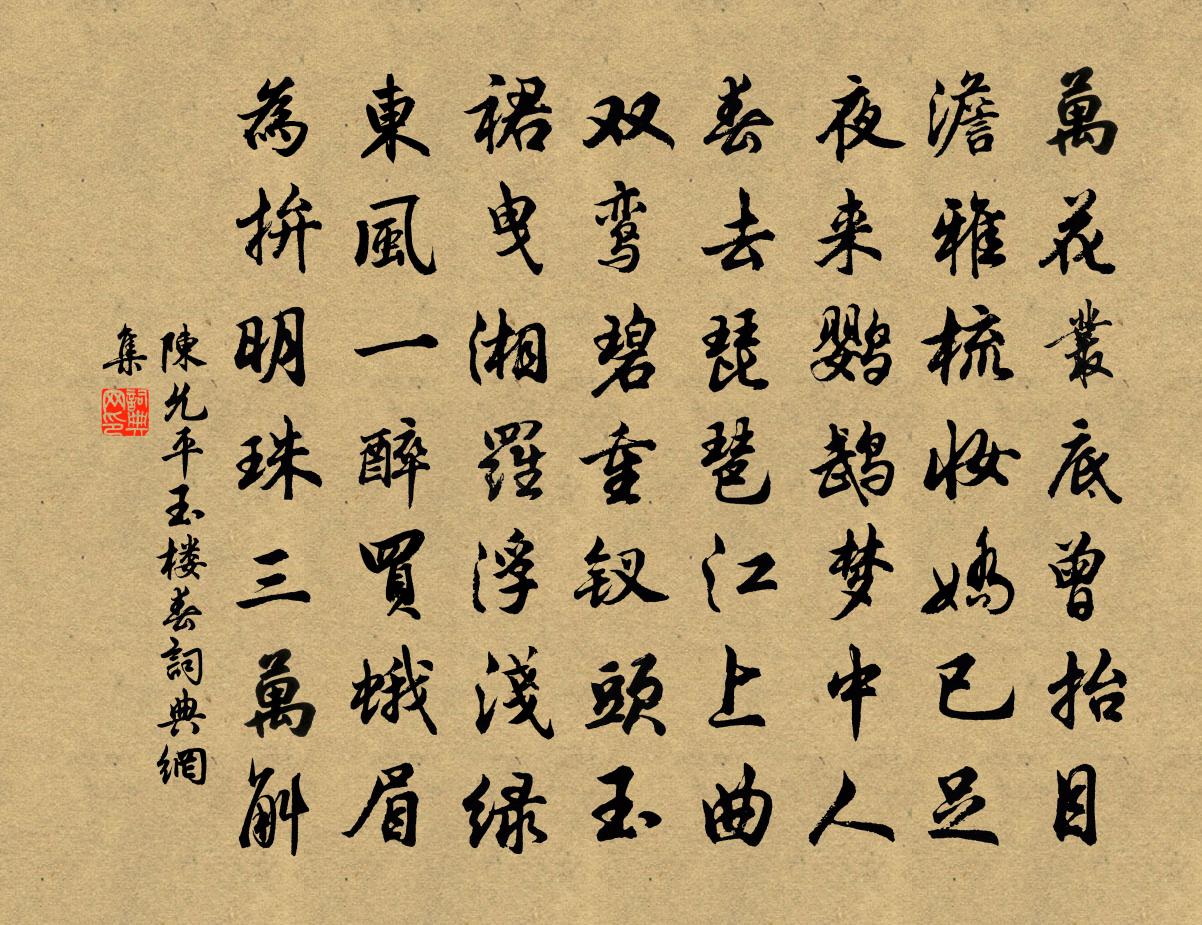 萬花叢底曾抬目
澹雅梳妆嬌已足
夜来鹦鹉梦中人
春去琵琶江上曲
双鸾碧重钗頭玉
裙曳湘羅浮淺绿
東風一醉買蛾眉
為拚明珠三萬斛
陳允平玉楼春詞典網
集
詞典網印